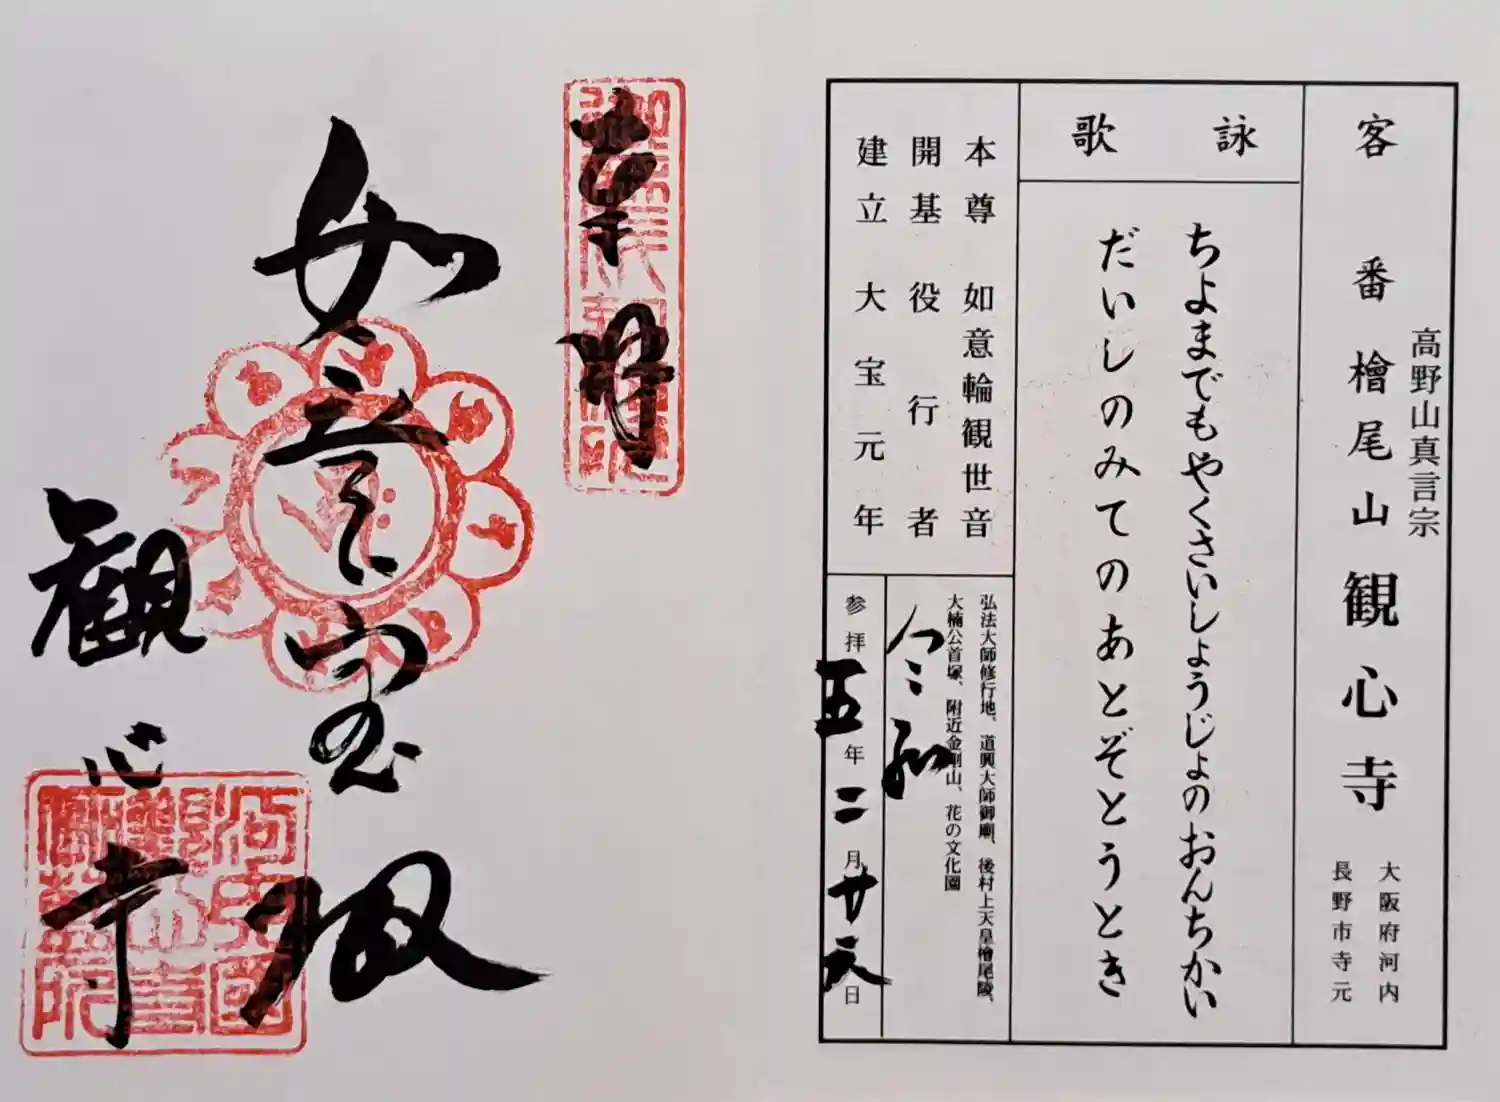 客番 檜尾山 観心寺
高野山真言宗
大阪府河内
長野市寺元
詠歌
ちよまでもやくさいしょうじょのおんちかい
だいしのみてのあとぞとうとき
本尊 如意輪観世音
開基 役行者
建立 大宝元年
弘法大師修行地、道興大師御廟、後村上天皇檜尾陵、
大楠公首塚、附近金剛山、花の文化園
令和
参拝五年二月廿六日
奉拝
如意宝殿
観心寺